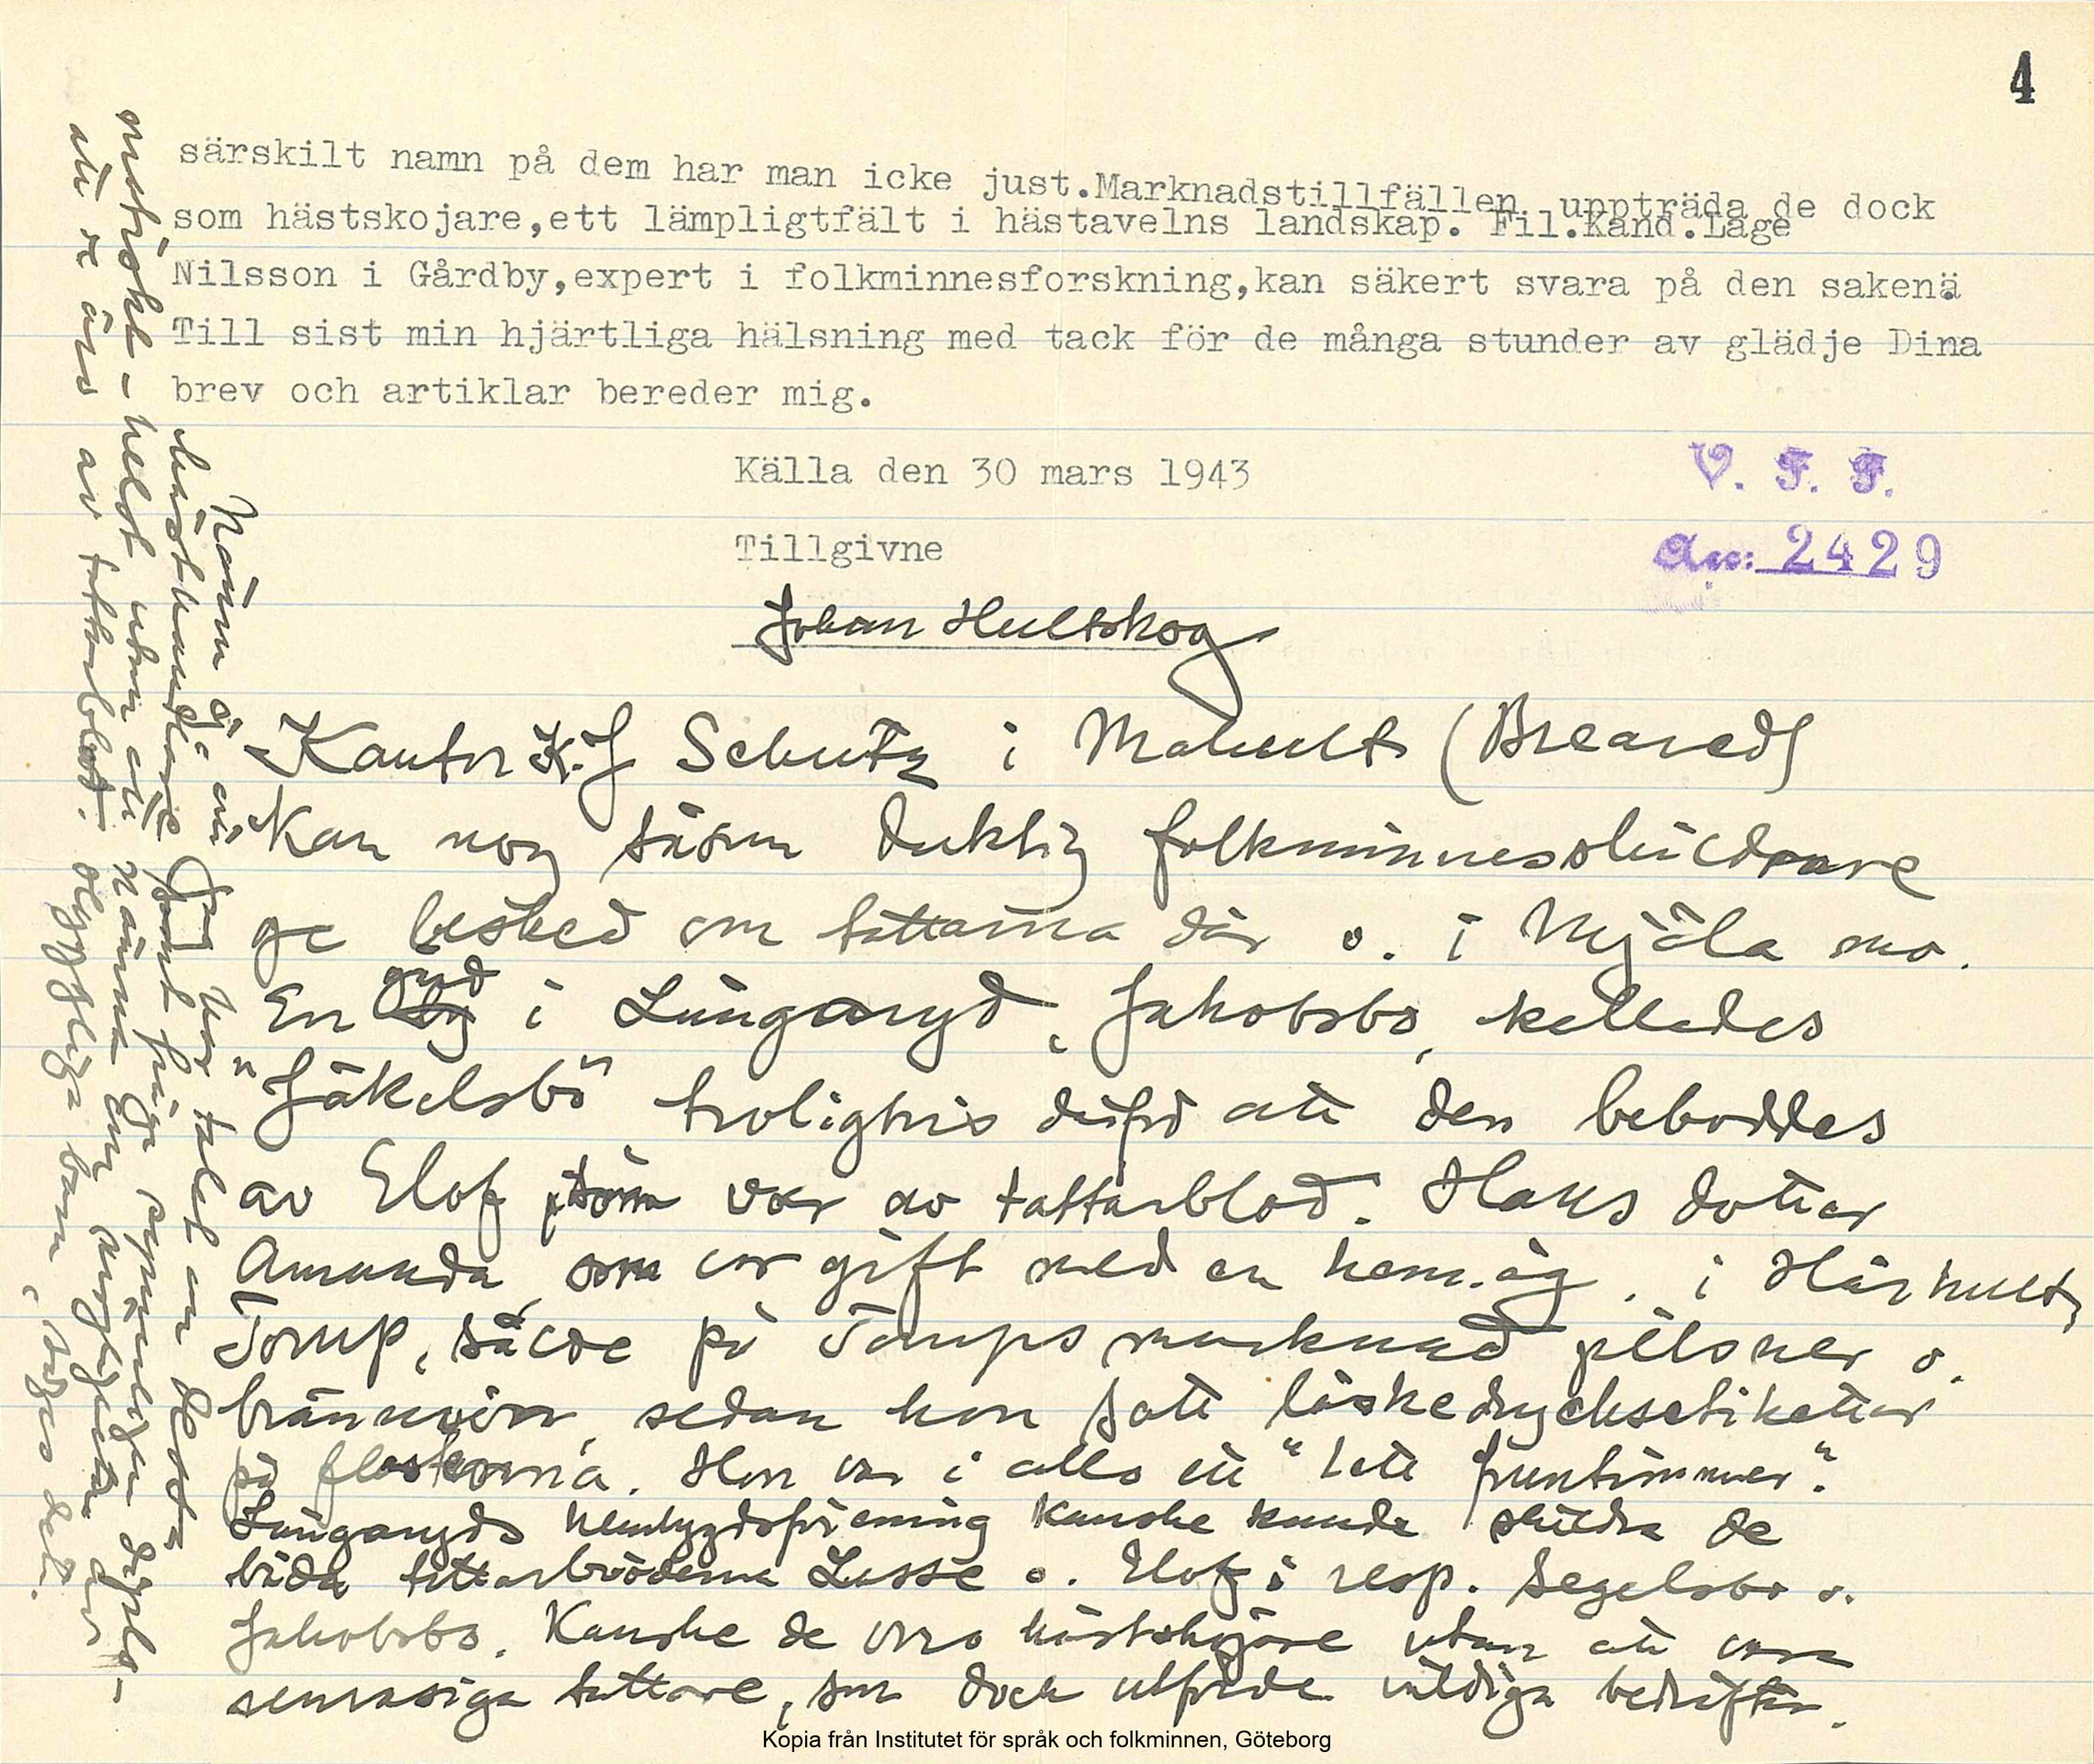 4
särskilt namn på dem har man icke just.Marknadstillfällen uppträda de dock
som hästskojare,ett lämpligtfält i hästavelns landskap. Fil.Kand.Lage
Nilsson i Gårdby,expert i folkminnesforskning,kan säkert svara på den sakenä
Till sist min hjärtliga hälsning med tack för de många stunder av glädje Dina
brev och artiklar bereder mig.
Källa den 30 mars 1943
Tillgivne
V. F. F.
Acc: 2429
Johan Hultskog
Kantor K.J Schutz i Mahult (Breared)
kan nog såsom duktig folkminnesskildrare
ge besked om tattarna där o. i Mjäla mo.
En gård i Långaryd, Jakobsbo, kallades
"Jäkelsbo" troligtvis därför att den beboddes
av Elof som var av tattarblod. Hans dotter
Amanda, som var gift med en hem.äg. i Hårhult,
Torup, sålde på Torups marknad pilsner o.
brännvin, sedan hon satt läskedrycksetiketter
på flaskorna. Hon var i alls ett "lätt fruntimmer".
Långaryds hembygdsförening kanske kunde skildra de
båda tattarbröderna Lasse o. Elof i resp. Segelsbo o.
Jakobsbo. Kanske de voro hästskojare utan att vara
renrasiga tattare, som dock utförde väldiga bedrifter.
Nämn ej att Jag har talat om detta
hästhandlare
mitiskt - helst utan att nämna
att de äro av tattarblod. säges det.
Kopia från Institutet för språk och folkminnen, Göteborg